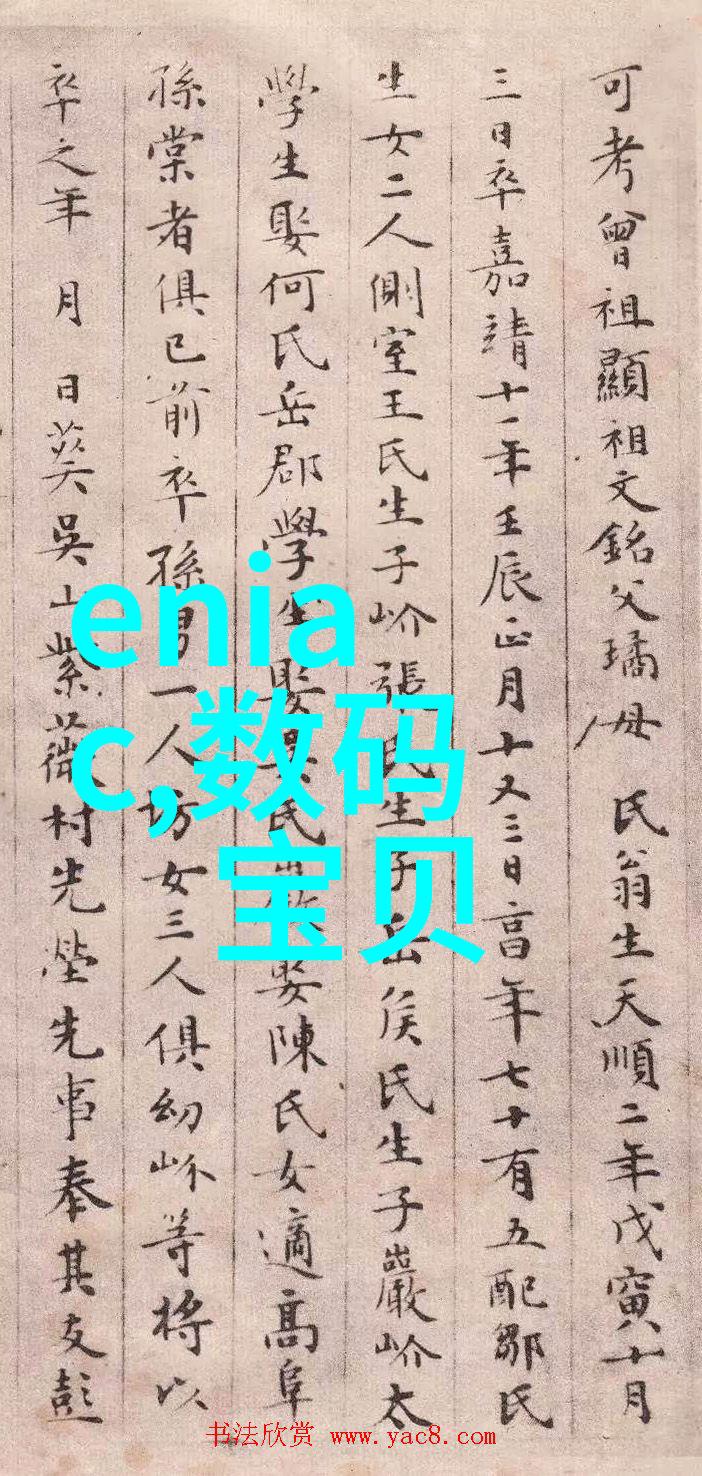 可考曾祖顯祖文銘父璚母 氏翁生天順二年戊寅十月
三日卒嘉靖十一年壬辰正月十又三日亯年七十有五配鄒氏
生女二人側室王氏生子岕張氏生子岳侯氏生子巖岕太
學生娶何氏岳郡學生娶吳氏巖娶陳氏女適高阜
孫棠者俱已前卒孫男一人坊女三人俱幼岕等將以
卒之年 月 日葬吳山紫薇村先塋先事奉其友彭
enia
c,数码
宝贝
书法欣赏 www.yac8.com